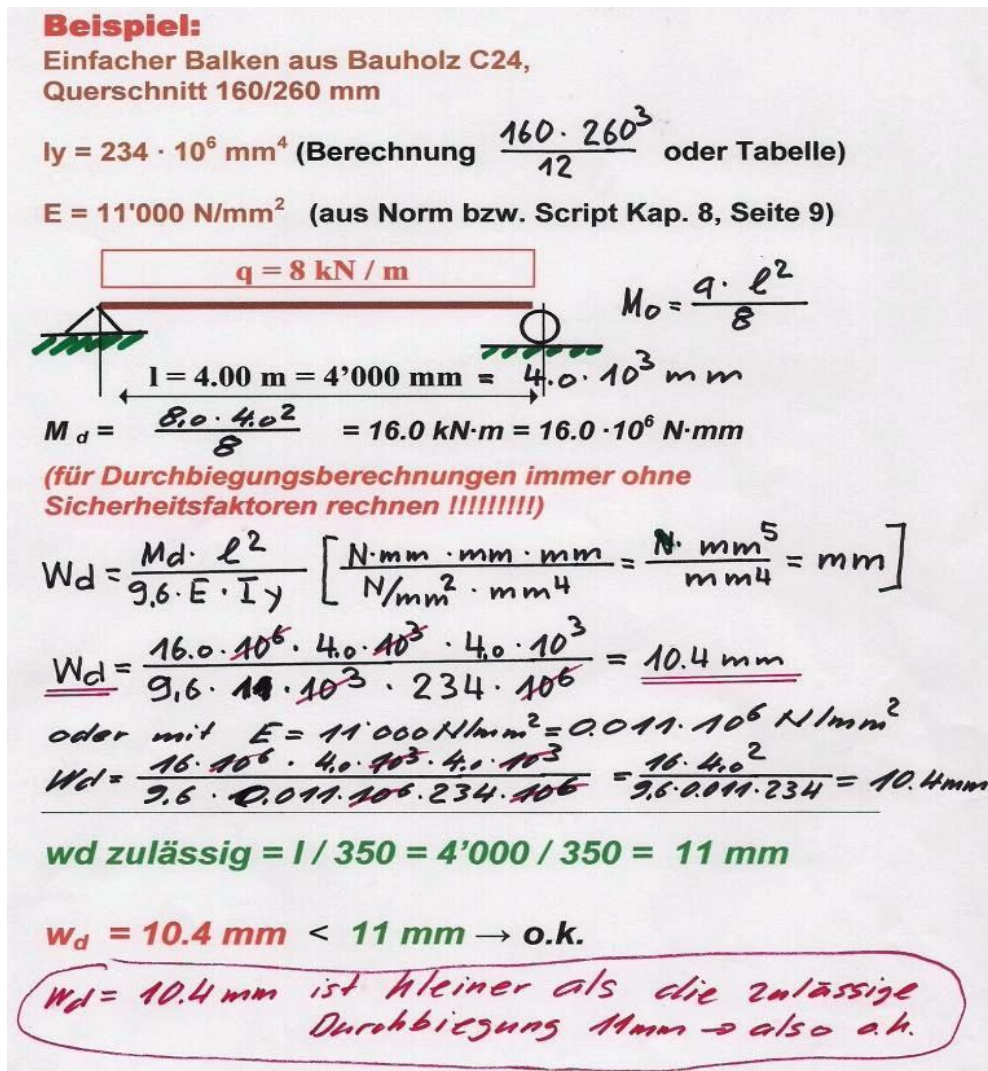 Beispiel:
Einfacher Balken aus Bauholz C24,
Querschnitt 160/260 mm
Iy = 234 · 10⁶ mm⁴ (Berechnung (160 · 260³)/12 oder Tabelle)
E = 11'000 N/mm² (aus Norm bzw. Script Kap. 8, Seite 9)
q = 8 kN / m
M₀ = (q · l²)/8
l = 4.00 m = 4’000 mm = 4.0 · 10³ mm
M d = (8,0 · 4.0²)/8 = 16.0 kN·m = 16.0 ·10⁶ N·mm
(für Durchbiegungsberechnungen immer ohne
Sicherheitsfaktoren rechnen !!!!!!!!!)
Wd = (Md · l²)/(9,6 · E · Iy) [(N·mm · mm · mm)/(N/mm² · mm⁴) = (N· mm⁵)/(mm⁴) = mm]
Wd = (16.0 · 10⁶ · 4.0 · 10³ · 4,0 · 10³)/(9,6 · 11 · 10³ · 234 · 10⁶) = 10.4 mm
oder mit E = 11'000 N/mm² = 0.011 · 10⁶ N/mm²
Wd = (16 · 10⁶ · 4.0 · 10³ · 4.0 · 10³)/(9.6 · 0.011 · 10⁶ · 234 · 10⁶) = (16 · 4.0²)/(9,6 · 0.011 · 234) = 10.4mm
wd zulässig = l / 350 = 4’000 / 350 = 11 mm
wd = 10.4 mm < 11 mm → o.k.
Wd = 10.4 mm ist kleiner als die zulässige
Durchbiegung 11mm → also o.k.